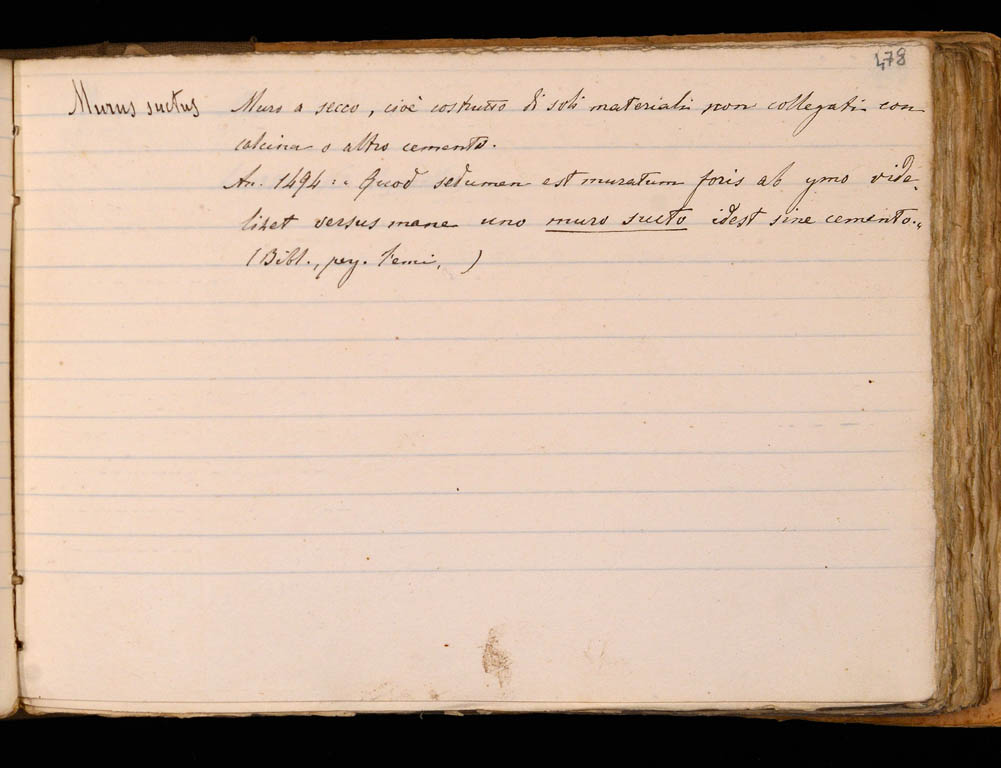 478
Murus suctus Muro a secco, cioè costrutto di soli materiali non collegati con
calcina o altro cemento.
An. 1494: " Quod sedumen est muratum foris ab ymo vide-
lizet versus mane uno muro sucto idest sine cemento. "
(Bibl., perg. )